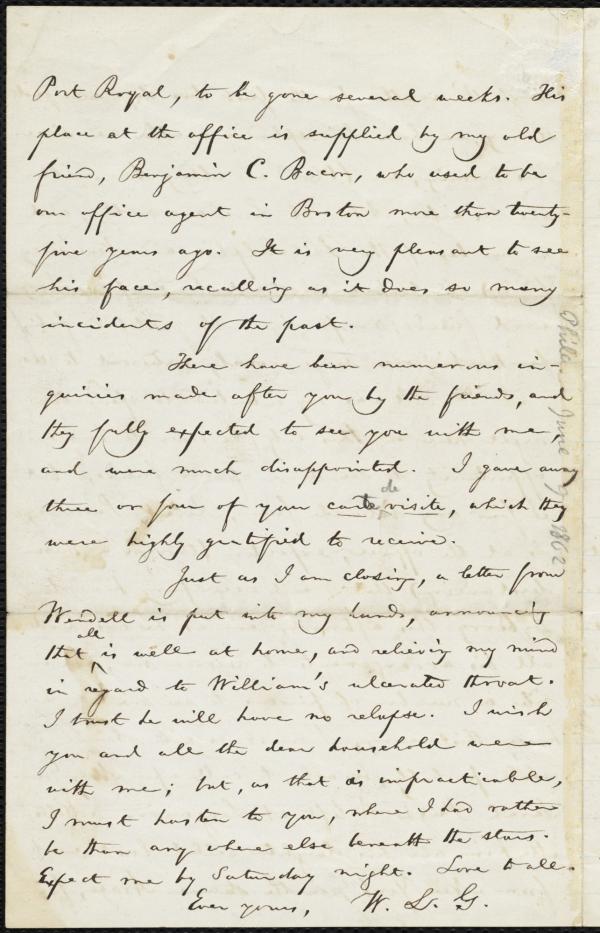 Port Royal, to be gone several weeks. His
place at the office is supplied by my old
friend, Benjamin C. Bacon, who used to be
our office agent in Boston more than twenty-
five years ago. It is very pleasant to see
his face, recalling as it does so many
incidents of the past.
There have been numerous in-
quiries made after you by the friends, and
they fully expected to see you with me,
and were much disappointed. I gave away
three or four of your carte de visite, which they
were highly gratified to receive.
Just as I am closing, a letter from
Wendell is put into my hands, announcing
that all is well at home, and relieving my mind
in regard to William's ulcerated throat.
I trust he will have no relapse. I wish
you and all the dear household were
with me; but, as that is impracticable,
I must hasten to you, where I had rather
be than any where else beneath the stars.
Expect me by Saturday night. Love to all.
Ever yours, W. L. G.
Phila. June 1862